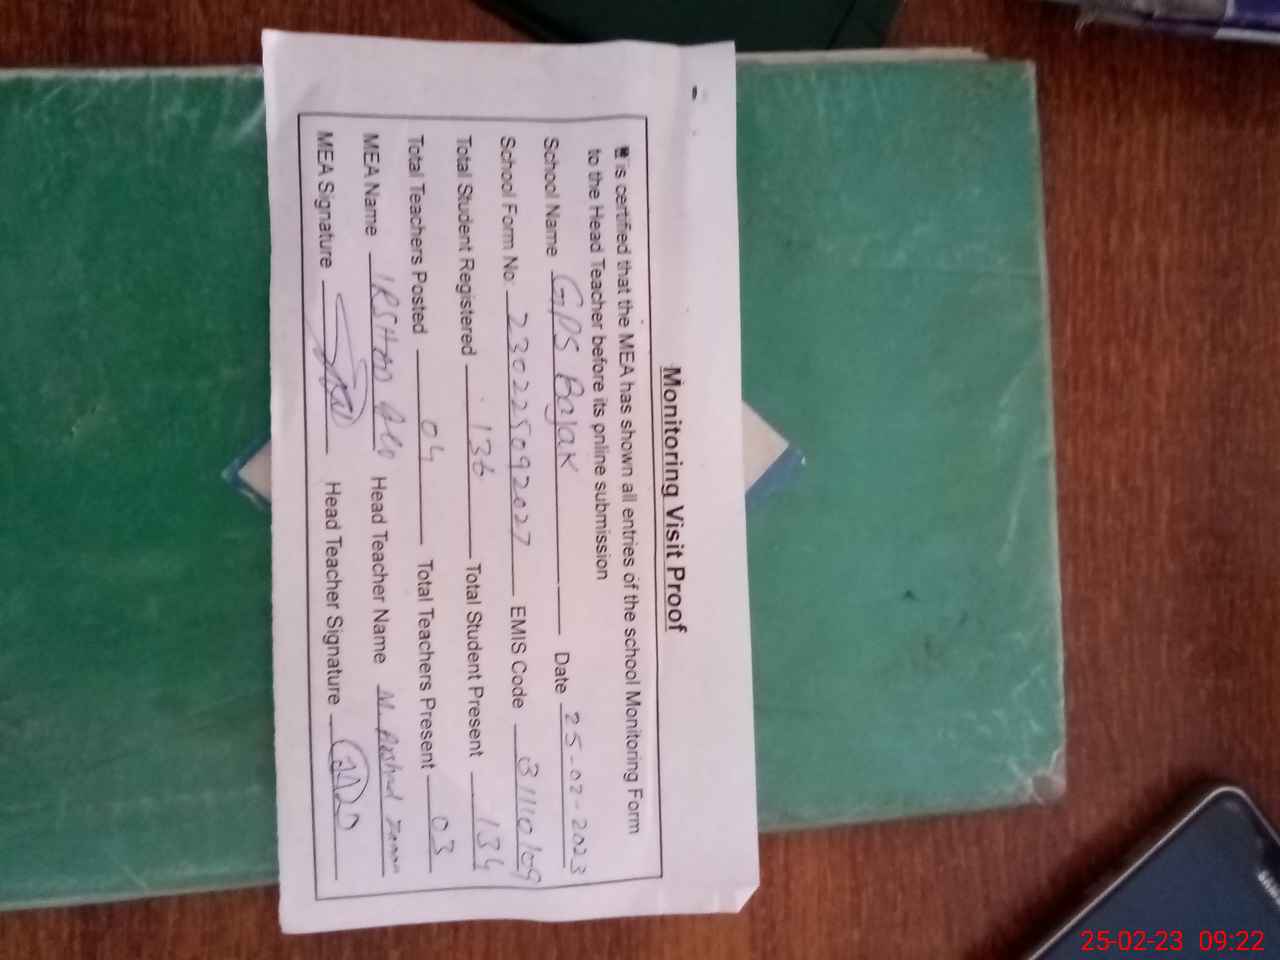 Monitoring Visit Proof
is certified that the MEA has shown all entries of the school Monitoring Form
to the Head Teacher before its online submission
School Name GPS Bajak Date 25-02-2023
School Form No. 230225092027 EMIS Code 31110109
Total Student Registered 136 Total Student Present 134
Total Teachers Posted 04 Total Teachers Present 03
MEA Name IRSHAD Head Teacher Name M. Arshad
MEA Signature Head Teacher Signature
25-02-23 09:22